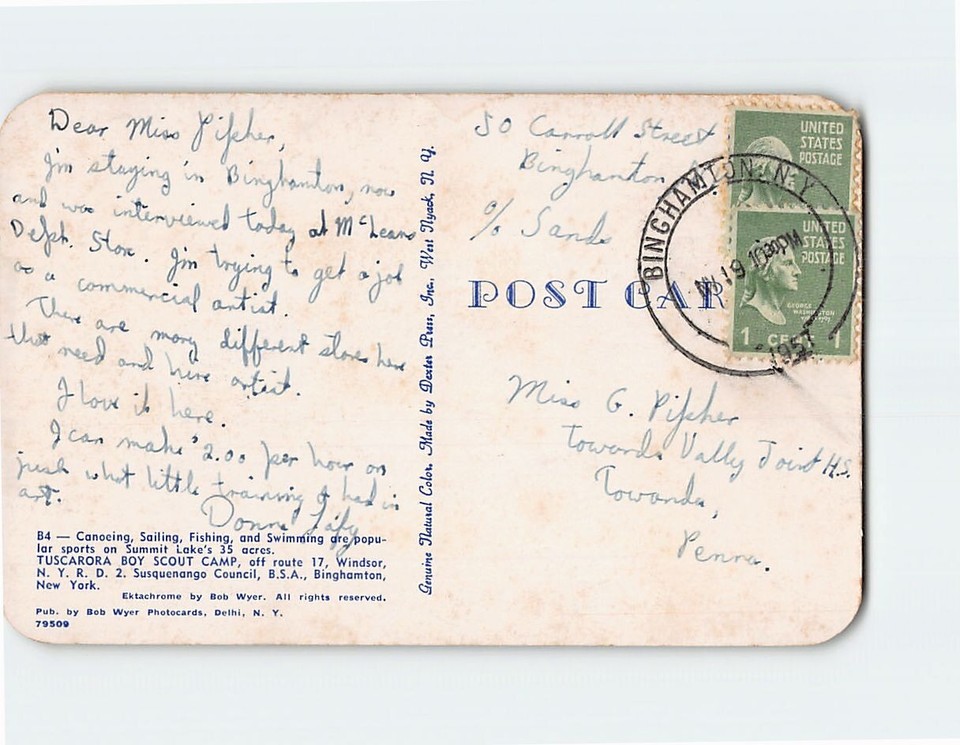 Dear Miss Pifher,
I'm staying in Binghamton, now
and was interviewed today at McLeans
Dept. Store. I'm trying to get a job
as a commercial artist.
There are many different stores here
that need and hire artist.
I love it here.
I can make $2.00 per hour on
just what little training I had in
art.
Donna
B4 — Canoeing, Sailing, Fishing, and Swimming are popu-
lar sports on Summit Lake's 35 acres.
TUSCARORA BOY SCOUT CAMP, off route 17, Windsor,
N. Y. R. D. 2. Susquenango Council, B.S.A., Binghamton,
New York.
Ektachrome by Bob Wyer. All rights reserved.
Pub. by Bob Wyer Photocards, Delhi, N. Y.
79509
Genuine Natural Color. Made by Dexter Press, Inc., West Nyack, N. Y.
50 Carroll Street
Binghamton
% Sands
POST CAR
UNITED
STATES
POSTAGE
UNITED
STATES
POSTAGE
GEORGE
WASHINGTON
1 CENT 1
BINGHAMTON, N.Y.
19
PM
195
Miss G. Pifher
Towanda Vally Joint H.S.
Towanda,
Penna.